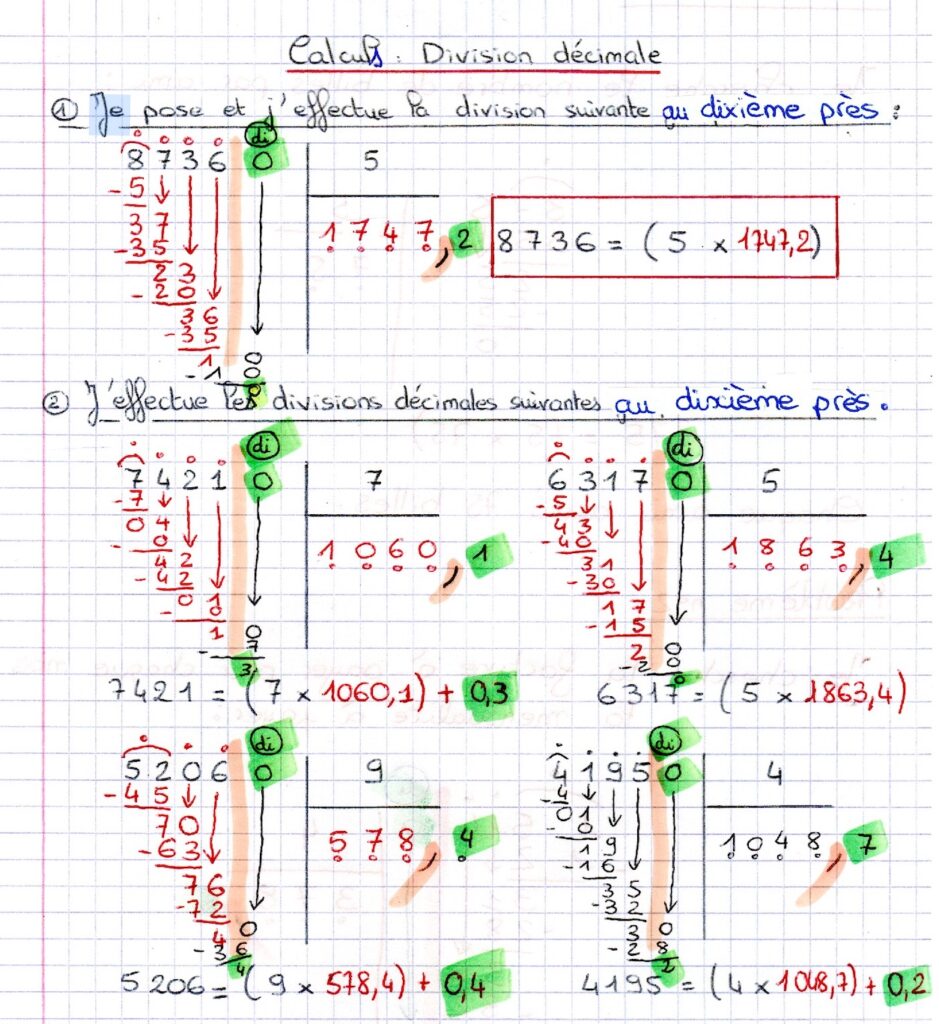 Calculs : Division décimale
① Je pose et j'effectue la division suivante au dixième près :
di
8 7 3 6 0 5
- 5
3 7 1 7 4 7 , 2 8 7 3 6 = ( 5 × 1747,2)
- 3 5
2 3
- 2 0
3 6
- 3 5
1 0
- 1 0
0
② J'effectue les divisions décimales suivantes au dixième près.
di
7 4 2 1 0 7
- 7
0 4
- 0 1 0 6 0 , 1
4 2
- 4 2
0 1
- 0
1 0
- 7
3
7 4 2 1 = ( 7 × 1060,1) + 0,3
di
6 3 1 7 0 5
- 5
4 3
- 4 0 1 8 6 3 , 4
3 1
- 3 0
1 7
- 1 5
2 0
- 2 0
0
6 3 1 7 = ( 5 × 1863,4)
di
5 2 0 6 0 9
- 4 5
7 0
- 6 3 5 7 8 , 4
7 6
- 7 2
4 0
- 3 6
4
5 206 = ( 9 × 578,4) + 0,4
di
4 1 9 5 0 4
- 4
0 1
- 0 1 0 4 8 , 7
1 9
- 1 6
3 5
- 3 2
3 0
- 2 8
2
4195 = (4 × 1048,7) + 0,2